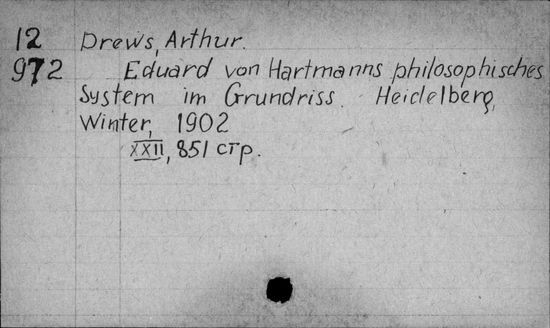 12 Drews, Arthur.
972 Eduard von Hartmanns philosophisches
System im Grundriss. Heidelberg,
Winter, 1902
XXII, 851 стр.